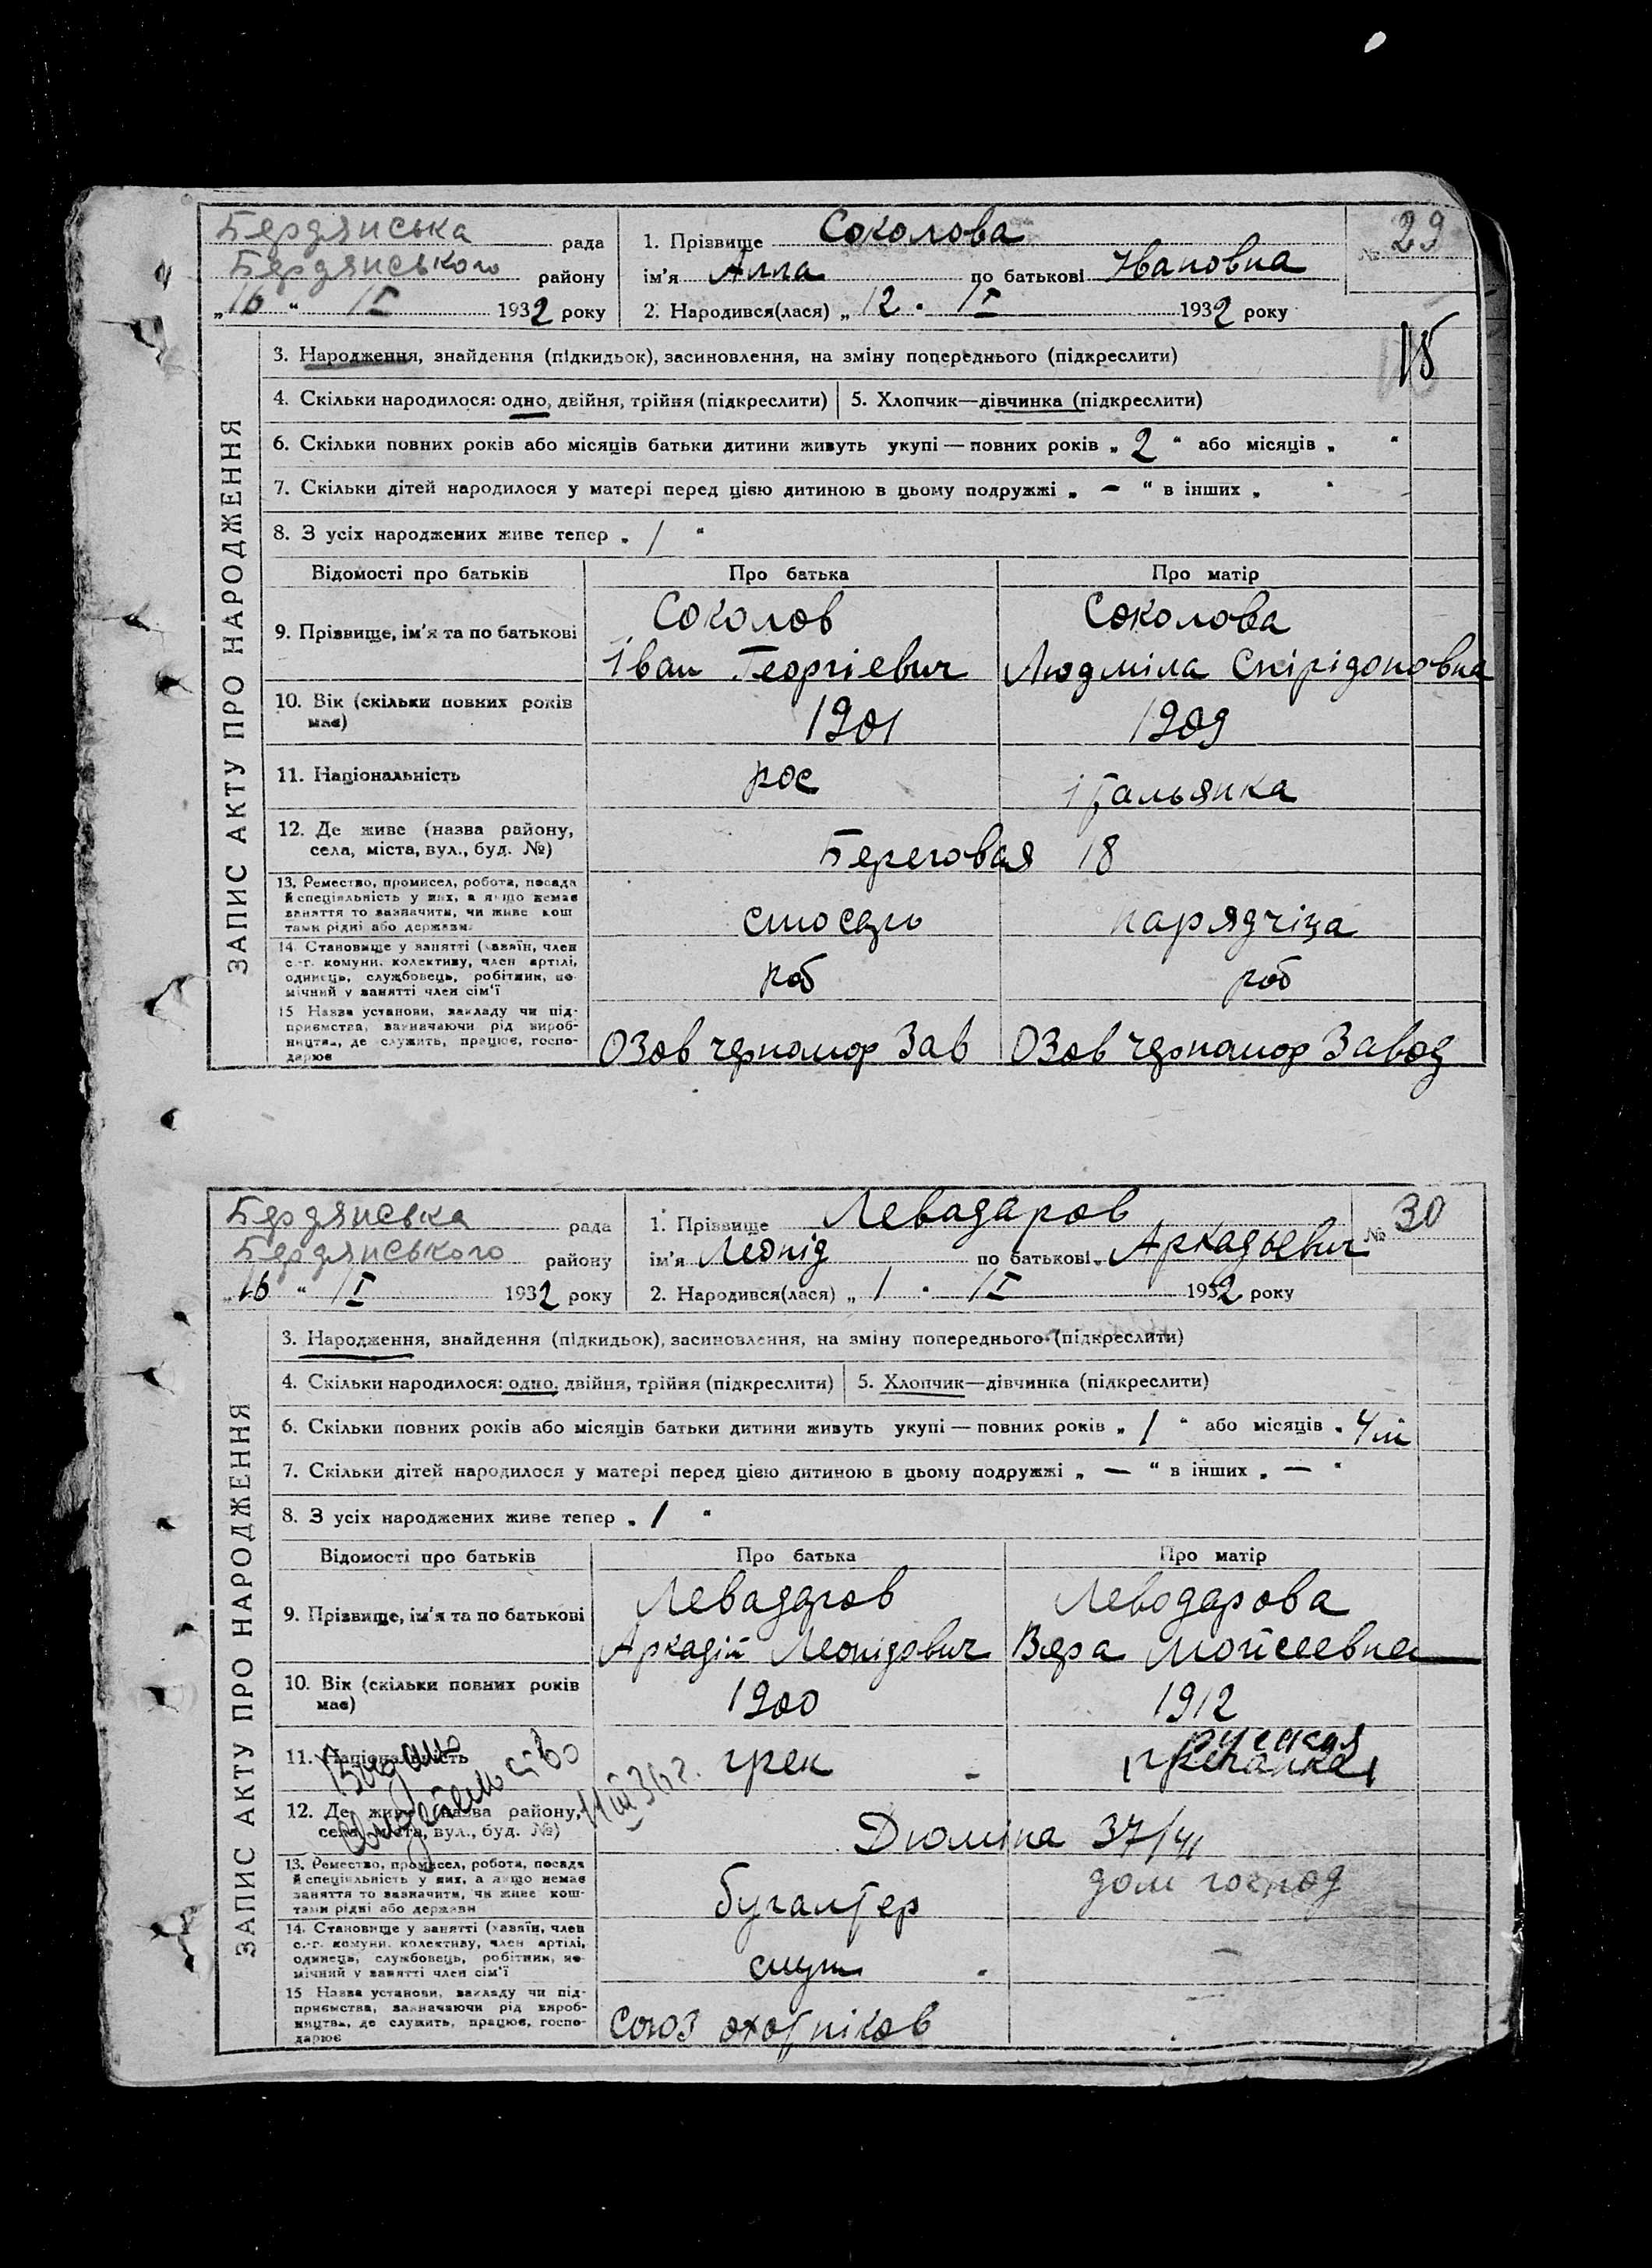 Бердянська рада
Бердянського району
„16“ І 1932 року
1. Прізвище Соколова
ім'я Алла по батькові Івановна
№ 29
2. Народився(лася) „12 " І 1932 року
ЗАПИС АКТУ ПРО НАРОДЖЕННЯ
3. Народження, знайдення (підкидьок), засиновлення, на зміну попереднього (підкреслити)
4. Скільки народилося: одно, двійня, трійня (підкреслити) 5. Хлопчик—дівчинка (підкреслити)
6. Скільки повних років або місяців батьки дитини живуть укупі — повних років „ 2 “ або місяців „ “
7. Скільки дітей народилося у матері перед цією дитиною в цьому подружжі „ — “ в інших „ “
8. З усіх народжених живе тепер „ 1 “
Відомості про батьків Про батька Про матір
9. Прізвище, ім'я та по батькові
Соколов Соколова
Іван Георгіевич Людміла Спірідоновна
10. Вік (скільки повних років має) 1901 1909
11. Національність рос італьянка
12. Де живе (назва району, села, міста, вул., буд. №)
Береговая 18
13. Ремество, промисел, робота, посада
й спеціяльність у них, а якщо немає
заняття то зазначити, чи живе кош
тами рідні або держави
нарядчіца
14. Становище у занятті (хазяїн, член
с.-г. комуни, колективу, член артілі,
одинець, службовець, робітник, по-
мічний у занятті член сім'ї
роб роб
15 Назва установи, закладу чи під-
приємства, зазначаючи рід вироб-
ництва, де служить, працює, госпо-
дарює
ОЗов черномор Зав ОЗов черномор Завод
Бердянська рада
Бердянського району
„16 “ І 1932 року
1. Прізвище Левадаров
ім'я Леонід по батькові Аркадьевич
№ 30
2. Народився(лася) „ 1 " І 1932 року
ЗАПИС АКТУ ПРО НАРОДЖЕННЯ
3. Народження, знайдення (підкидьок), засиновлення, на зміну попереднього (підкреслити)
4. Скільки народилося: одно, двійня, трійня (підкреслити) 5. Хлопчик—дівчинка (підкреслити)
6. Скільки повних років або місяців батьки дитини живуть укупі — повних років „ 1 “ або місяців „ 4 м
7. Скільки дітей народилося у матері перед цією дитиною в цьому подружжі „ — “ в інших „ — “
8. З усіх народжених живе тепер „ 1 “
Відомості про батьків Про батька Про матір
9. Прізвище, ім'я та по батькові
Левадаров Леводарова
Аркадій Леонідович Вера Мойсеевна
10. Вік (скільки повних років має) 1900 1912
11. Національність грек гречанка
12. Де живе (назва району, села, міста, вул., буд. №)
Дюміна 37/41
13. Ремество, промисел, робота, посада
й спеціяльність у них, а якщо немає
заняття то зазначити, чи живе кош-
тами рідні або держави
бугалтер дом господ
14. Становище у занятті (хазяїн, член
с.-г. комуни, колективу, член артілі,
одинець, службовець, робітник, по-
мічний у занятті член сім'ї
служ —
15 Назва установи, закладу чи під-
приємства, зазначаючи рід вироб-
ництва, де служить, працює, госпо-
дарює
Союз охотніков